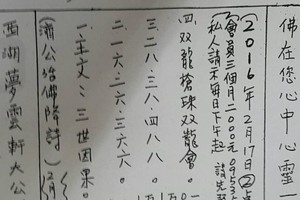 佛在您心中心靈一
(2016年2月17日②点
②會員三個月二000元0953
私人請示每日下午起
四.双龍搶珠双龍會。
三.二八.三八.四八八。
二.一六.二六.三六六。
一.主文:三世因果。
(濟公活佛降詩)(2月
西湖夢雲軒大公